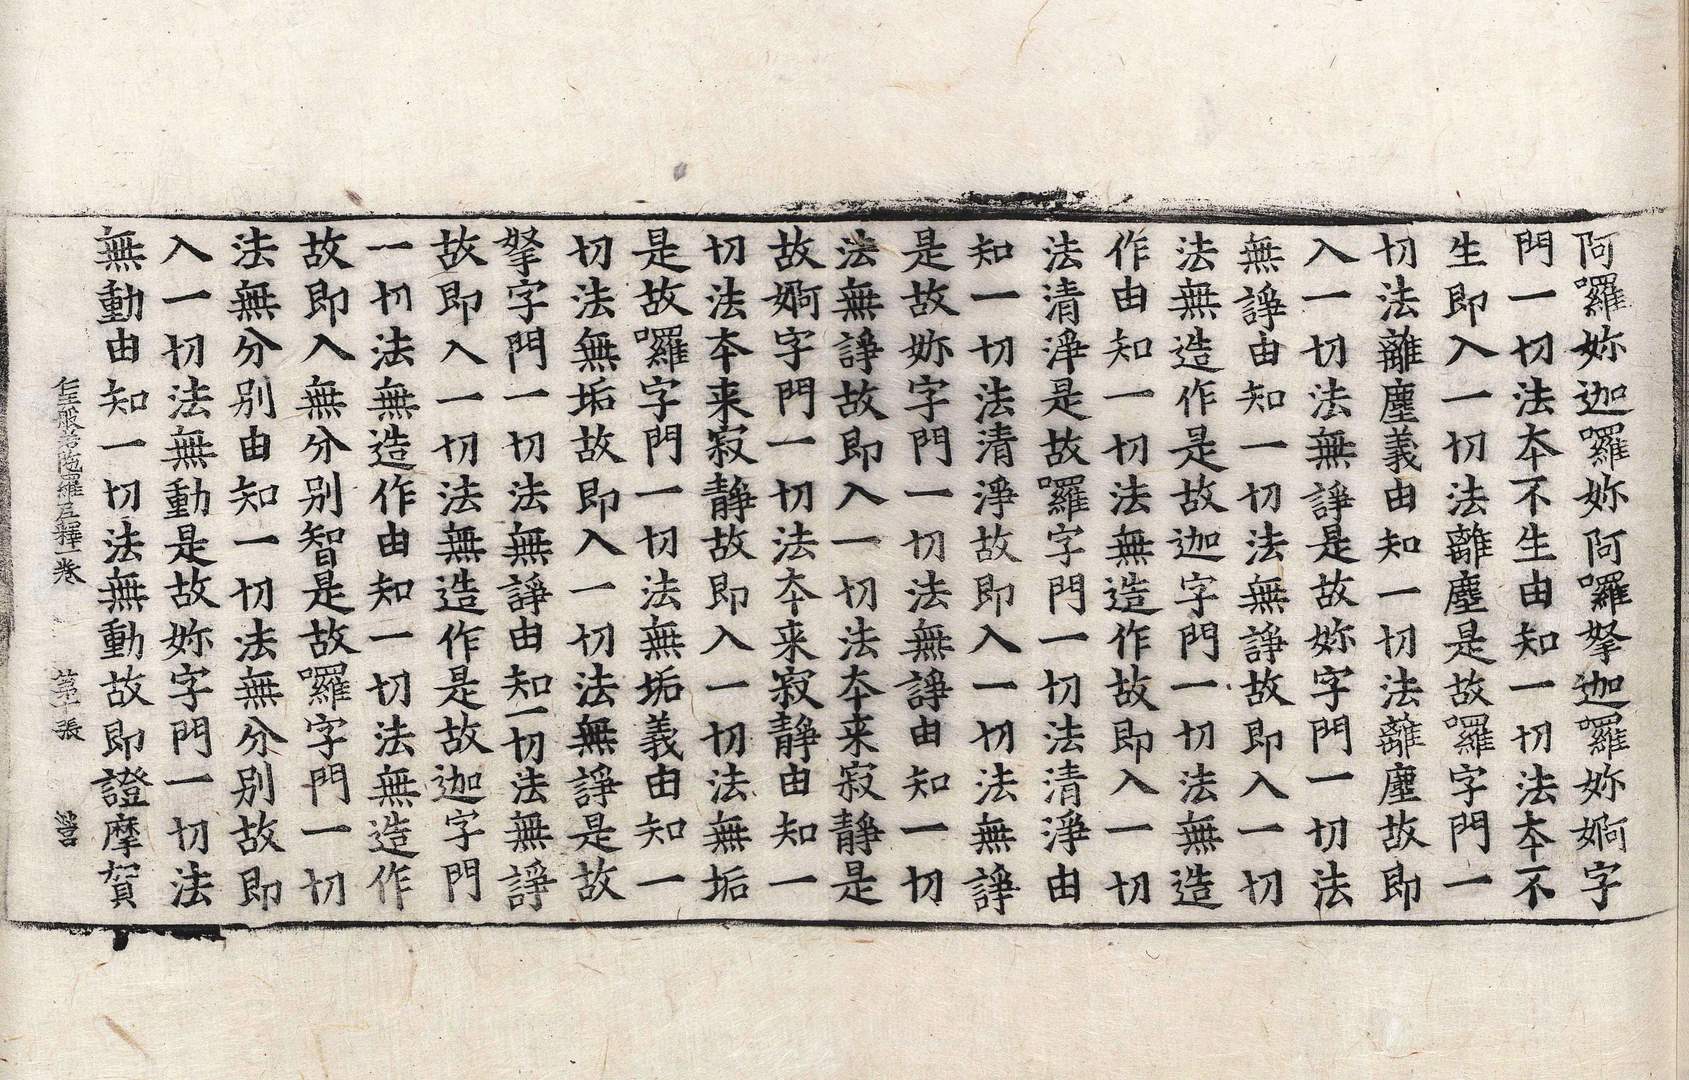 阿囉妳迦囉妳阿囉拏迦囉妳婀字
門一切法夲不生由知一切法夲不
生即入一切法離塵是故囉字門一
切法離塵義由知一切法離塵故即
入一切法無諍是故妳字門一切法
無諍由知一切法無諍故即入一切
法無造作是故迦字門一切法無造
作由知一切法無造作故即入一切
法清淨是故囉字門一切法清淨由
知一切法清淨故即入一切法無諍
是故妳字門一切法無諍由知一切
法無諍故即入一切法夲来寂靜是
故婀字門一切法夲来寂靜由知一
切法夲来寂靜故即入一切法無垢
是故囉字門一切法無垢義由知一
切法無垢故即入一切法無諍是故
拏字門一切法無諍由知一切法無諍
故即入一切法無造作是故迦字門
一切法無造作由知一切法無造作
故即入無分別智是故囉字門一切
法無分別由知一切法無分別故即
入一切法無動是故妳字門一切法
無動由知一切法無動故即證摩賀
仁王般若陁羅尼釋一卷 第十張